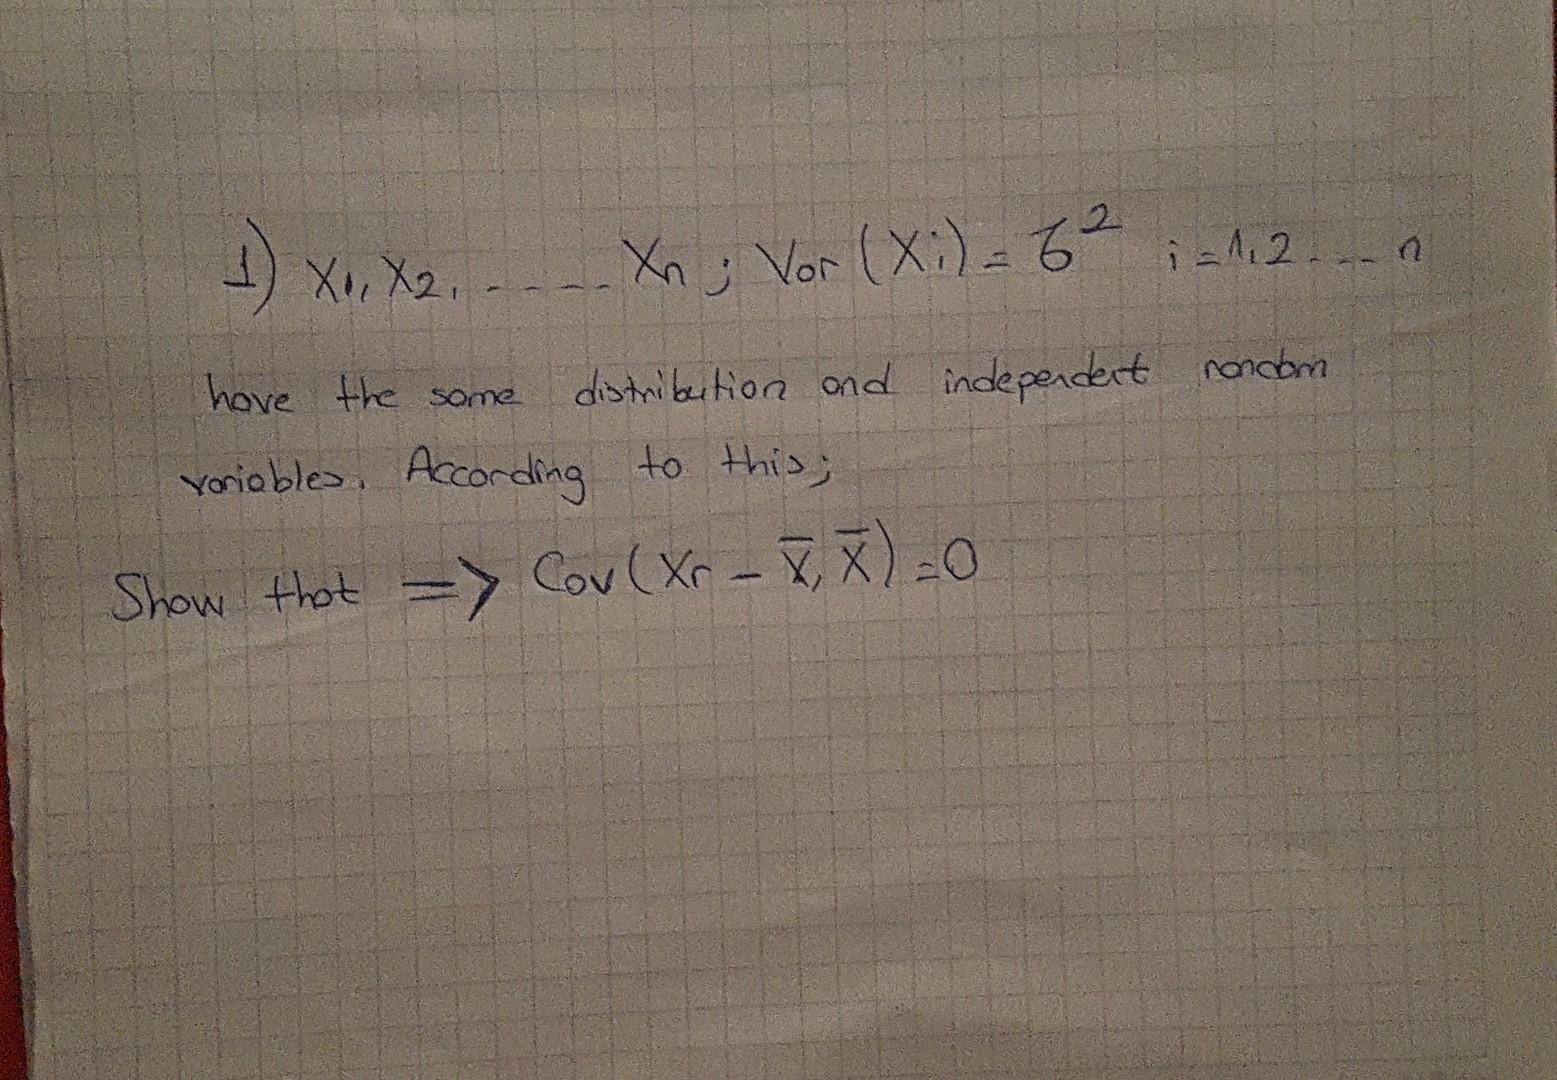 1) X1, X2, ..... Xn ; Var (Xi) = σ² i = 1, 2 .... n
have the same distribution and independent random
variables. According to this;
Show that => Cov (Xr - X̅, X̅) = 0